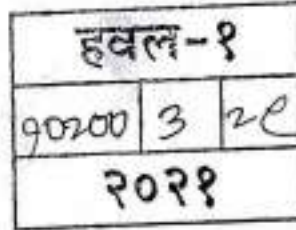 हवल-१
१०२०० ३ २९
२०२१